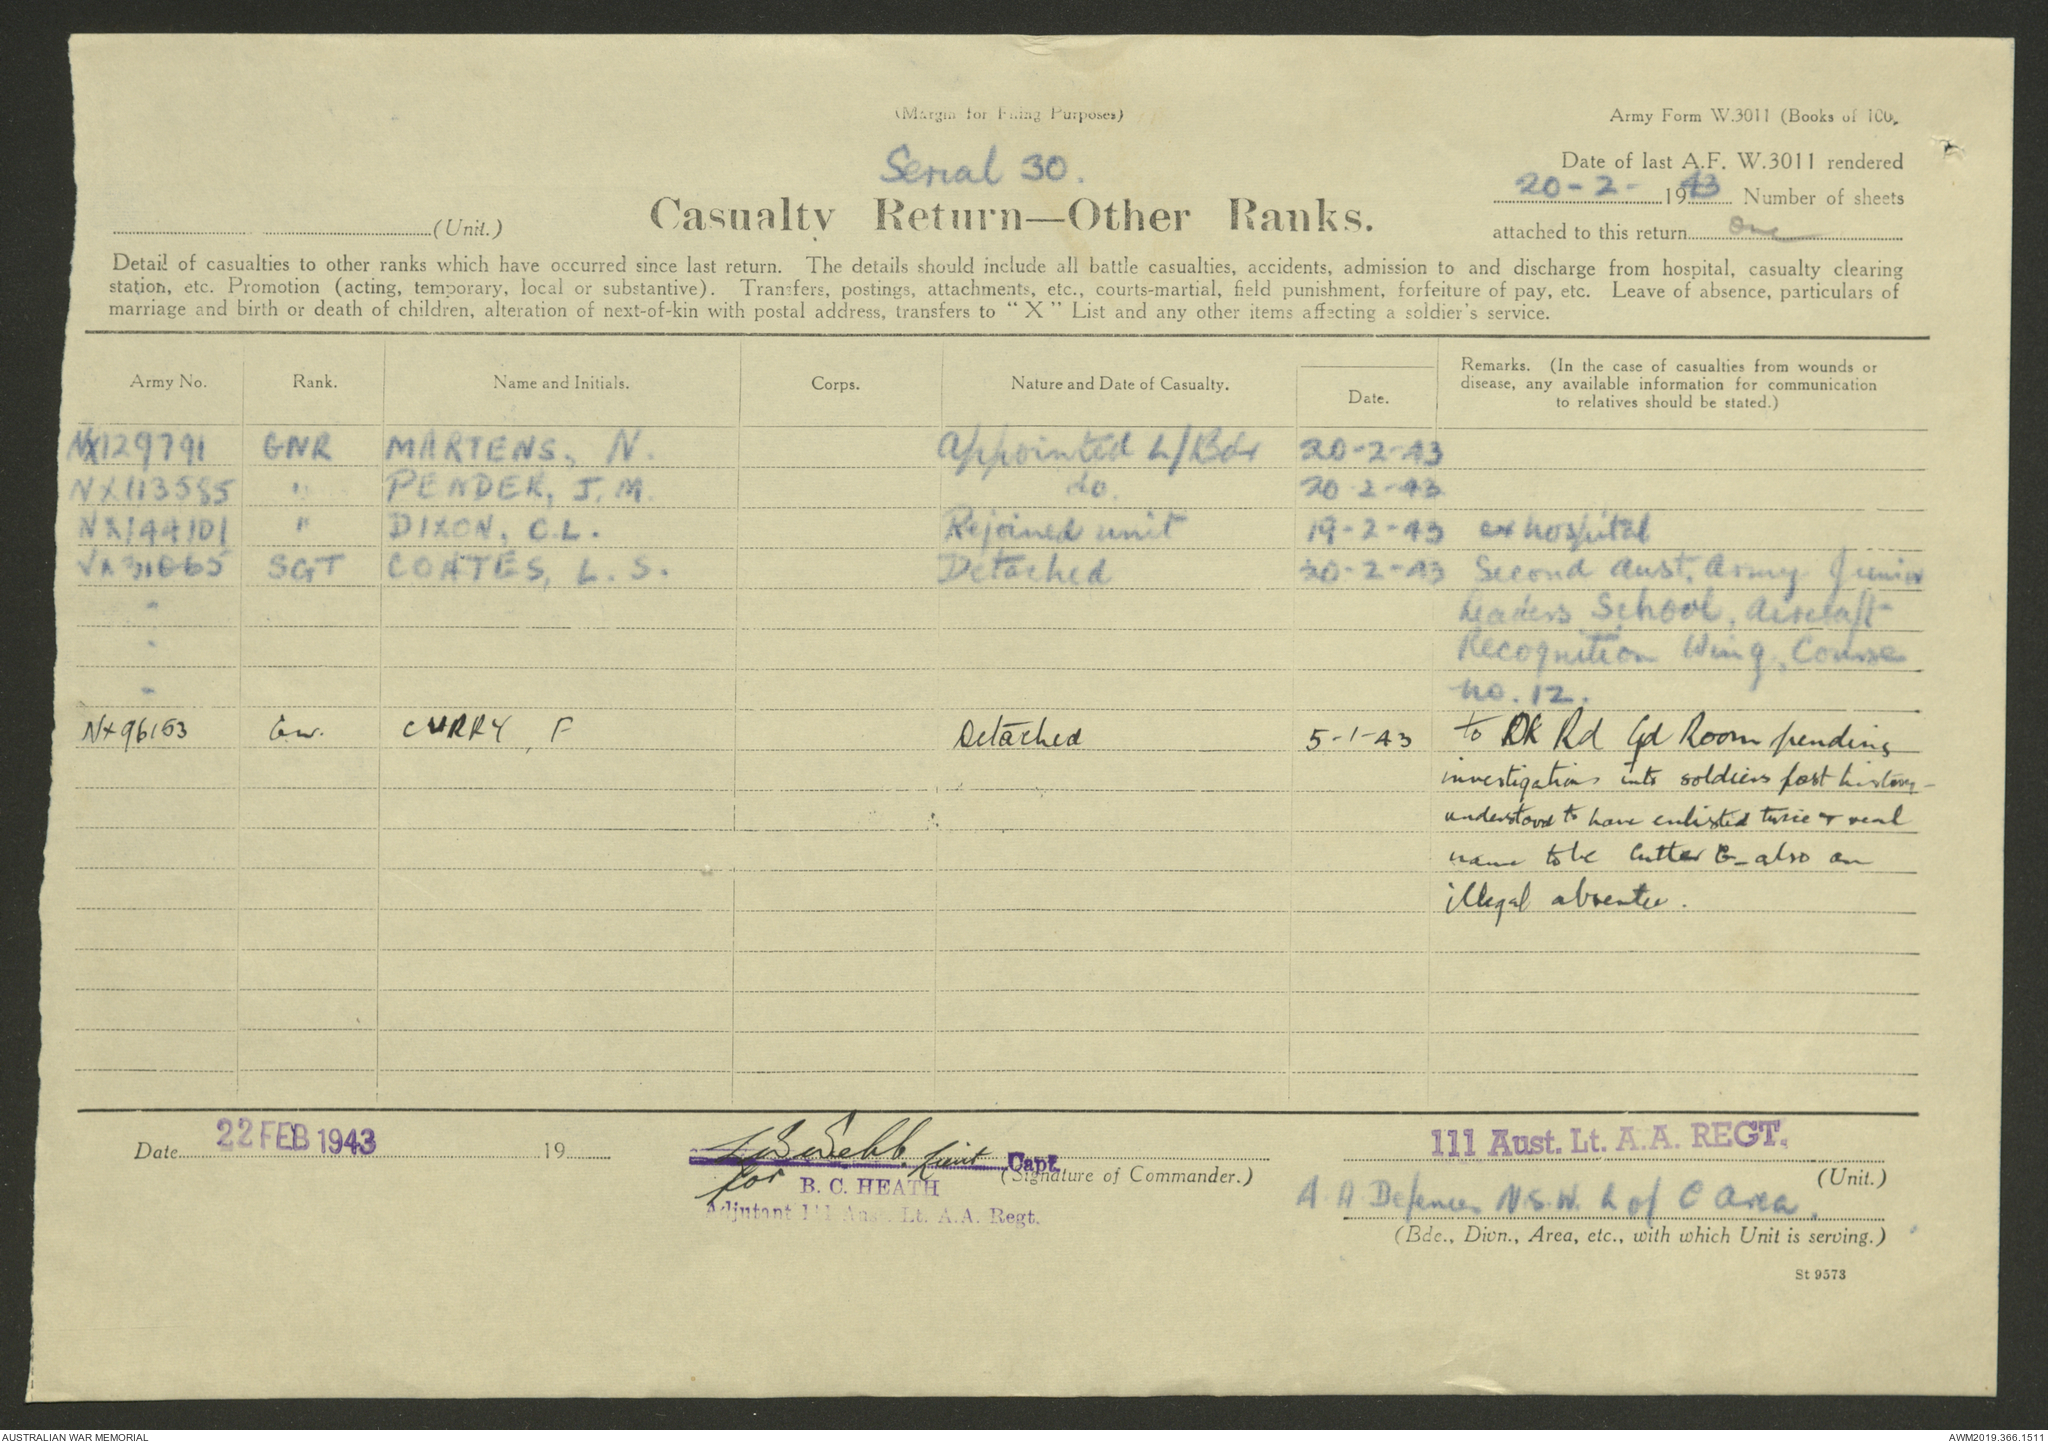 (Margin for Filing Purposes)
Army Form W.3011 (Books of 100,
Serial 30.
Date of last A.F. W.3011 rendered
20-2- 1943 Number of sheets
(Unit.)
Casualty Return—Other Ranks.
attached to this return one
Detail of casualties to other ranks which have occurred since last return. The details should include all battle casualties, accidents, admission to and discharge from hospital, casualty clearing
station, etc. Promotion (acting, temporary, local or substantive). Transfers, postings, attachments, etc., courts-martial, field punishment, forfeiture of pay, etc. Leave of absence, particulars of
marriage and birth or death of children, alteration of next-of-kin with postal address, transfers to "X" List and any other items affecting a soldier's service.
Army No. Rank. Name and Initials. Corps. Nature and Date of Casualty. Date. Remarks. (In the case of casualties from wounds or
disease, any available information for communication
to relatives should be stated.)
NX129791 GNR MARTENS, N. Appointed L/Bdr 20-2-43
NX113585 " PENDER, J.M. do. 20-2-43
NX144101 " DIXON, C.L. Rejoined unit 19-2-43 ex hospital
SGT COATES, L.S. Detached 20-2-43 Second Aust. Army Junior
Leaders School, Aircraft
Recognition Wing, Course
no. 12.
NX96153 Gnr. CURRY, F Detached 5-1-43 to Rd Gd Room pending
investigations into soldiers past history -
understood to have enlisted twice & real
name to be Cutter - also an
illegal absentee.
Date 22 FEB 1943 19
Webb. Lieut Capt.
(Signature of Commander.)
for B. C. HEATH
Adjutant 111 Aust. Lt. A.A. Regt.
111 Aust. Lt. A.A. REGT.
(Unit.)
A.A Defences N.S.W. L of C Area.
(Bde., Divn., Area, etc., with which Unit is serving.)
St 9573
AUSTRALIAN WAR MEMORIAL
AWM2019.366.1511